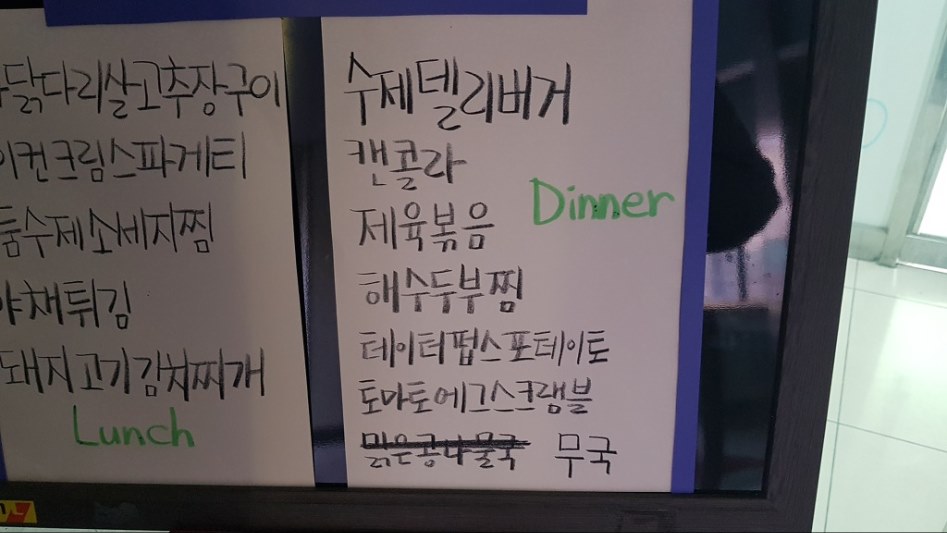 닭다리살고추장구이
이컨크림스파게티
둠수제소세지찜
야채튀김
돼지고기김치찌개
Lunch
수제델리버거
캔콜라
Dinner
제육볶음
해수두부찜
테이터펍스포테이토
토마토에그스크램블
맑은콩나물국 무국